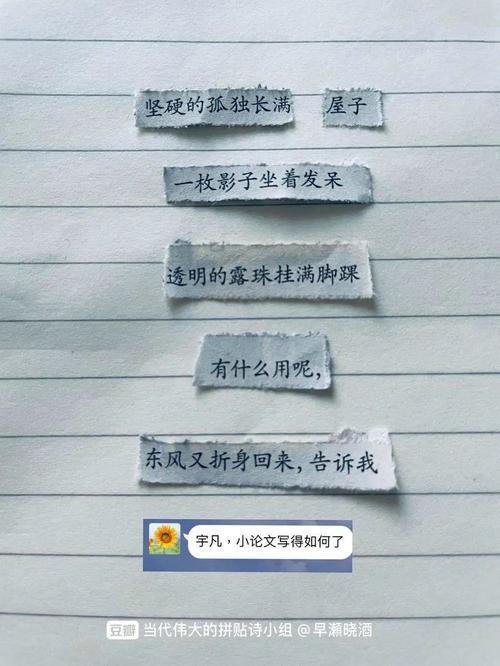 坚硬的孤独长满 屋子
一枚影子坐着发呆
透明的露珠挂满脚踝
有什么用呢,
东风又折身回来,告诉我
宇凡，小论文写得如何了
豆瓣 当代伟大的拼贴诗小组 @早瀬晓酒